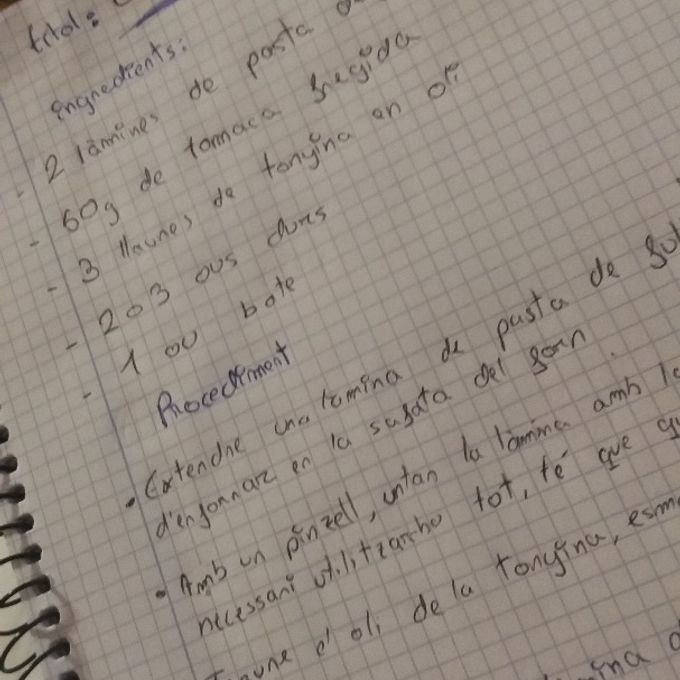 títol:
Ingredients:
- 2 làmines de pasta
- 60g de tomaca fregida
- 3 llaunes de tonyina en oli
- 2 o 3 ous durs
- 1 ou bate
Procediment
• Extendre una lamina de pasta de
d'enfornar en la safata del forn.
• Amb un pinzell, untan la làmina amb
necessari utilitzarho tot, té que
d'oli de la tonyina,